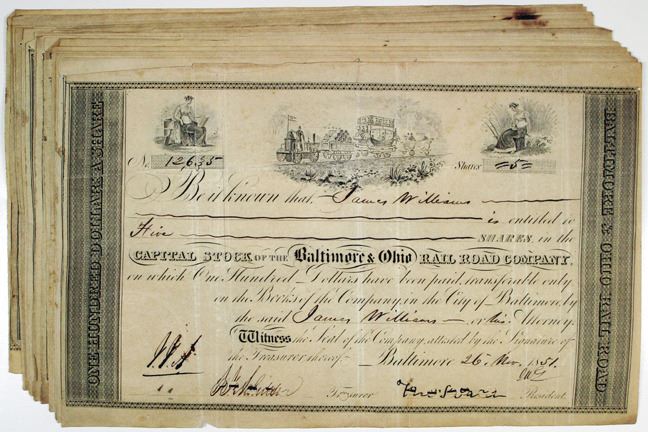 No. 12,635 Shares =5=
Be it known that James Willisons
is entitled to
Five SHARES in the
CAPITAL STOCK OF THE Baltimore & Ohio RAIL ROAD COMPANY,
on which One Hundred Dollars have been paid, transferable only
on the Books of the Company, in the City of Baltimore, by
the said James Willisons or his Attorney.
Witness the Seal of the Company, attested by the Signature of
the Treasurer thereof Baltimore 26 Nov. 1851.
Treasurer President.
ONE HUNDRED DOLLARS A SHARE
BALTIMORE & OHIO RAIL ROAD